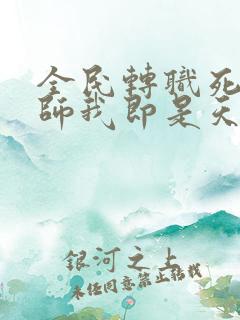 全民轉職死
師我即是天
銀河之上
未经同意禁止转载